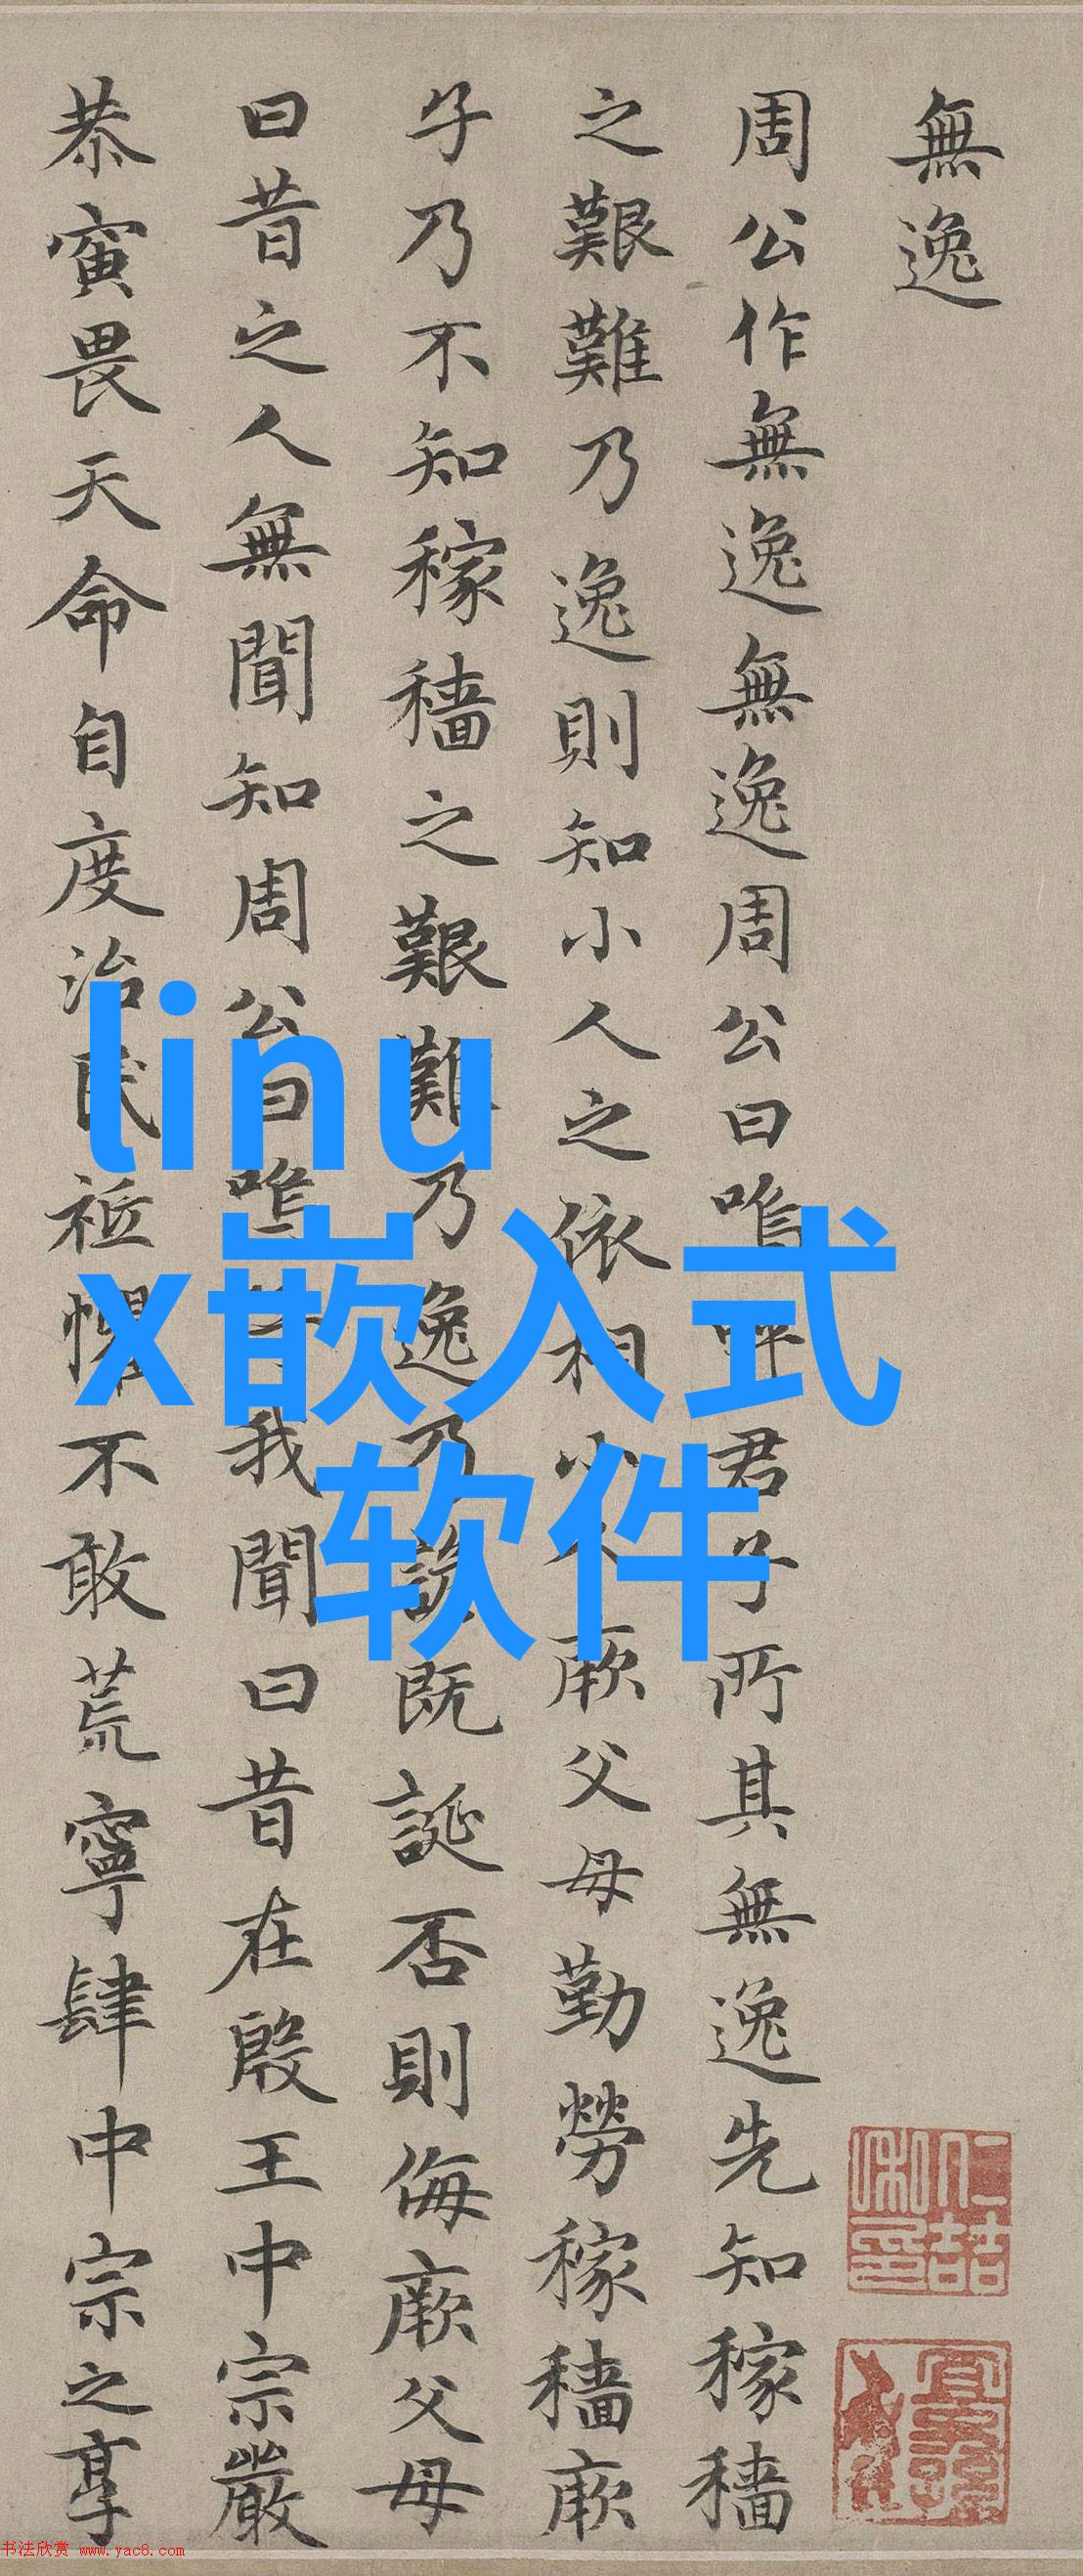 無逸
周公作無逸無逸周公曰嗚呼君子所其無逸先知稼穡
之艱難乃逸則知小人之依相小人厥父母勤勞稼穡厥
子乃不知稼穡之艱難乃逸乃諺既誕否則侮厥父母
曰昔之人無聞知周公曰嗚呼我聞曰昔在殷王中宗嚴
恭寅畏天命自度治民祗懼不敢荒寧肆中宗之享
linu
x嵌入式
软件
书法欣赏 www.yac8.com